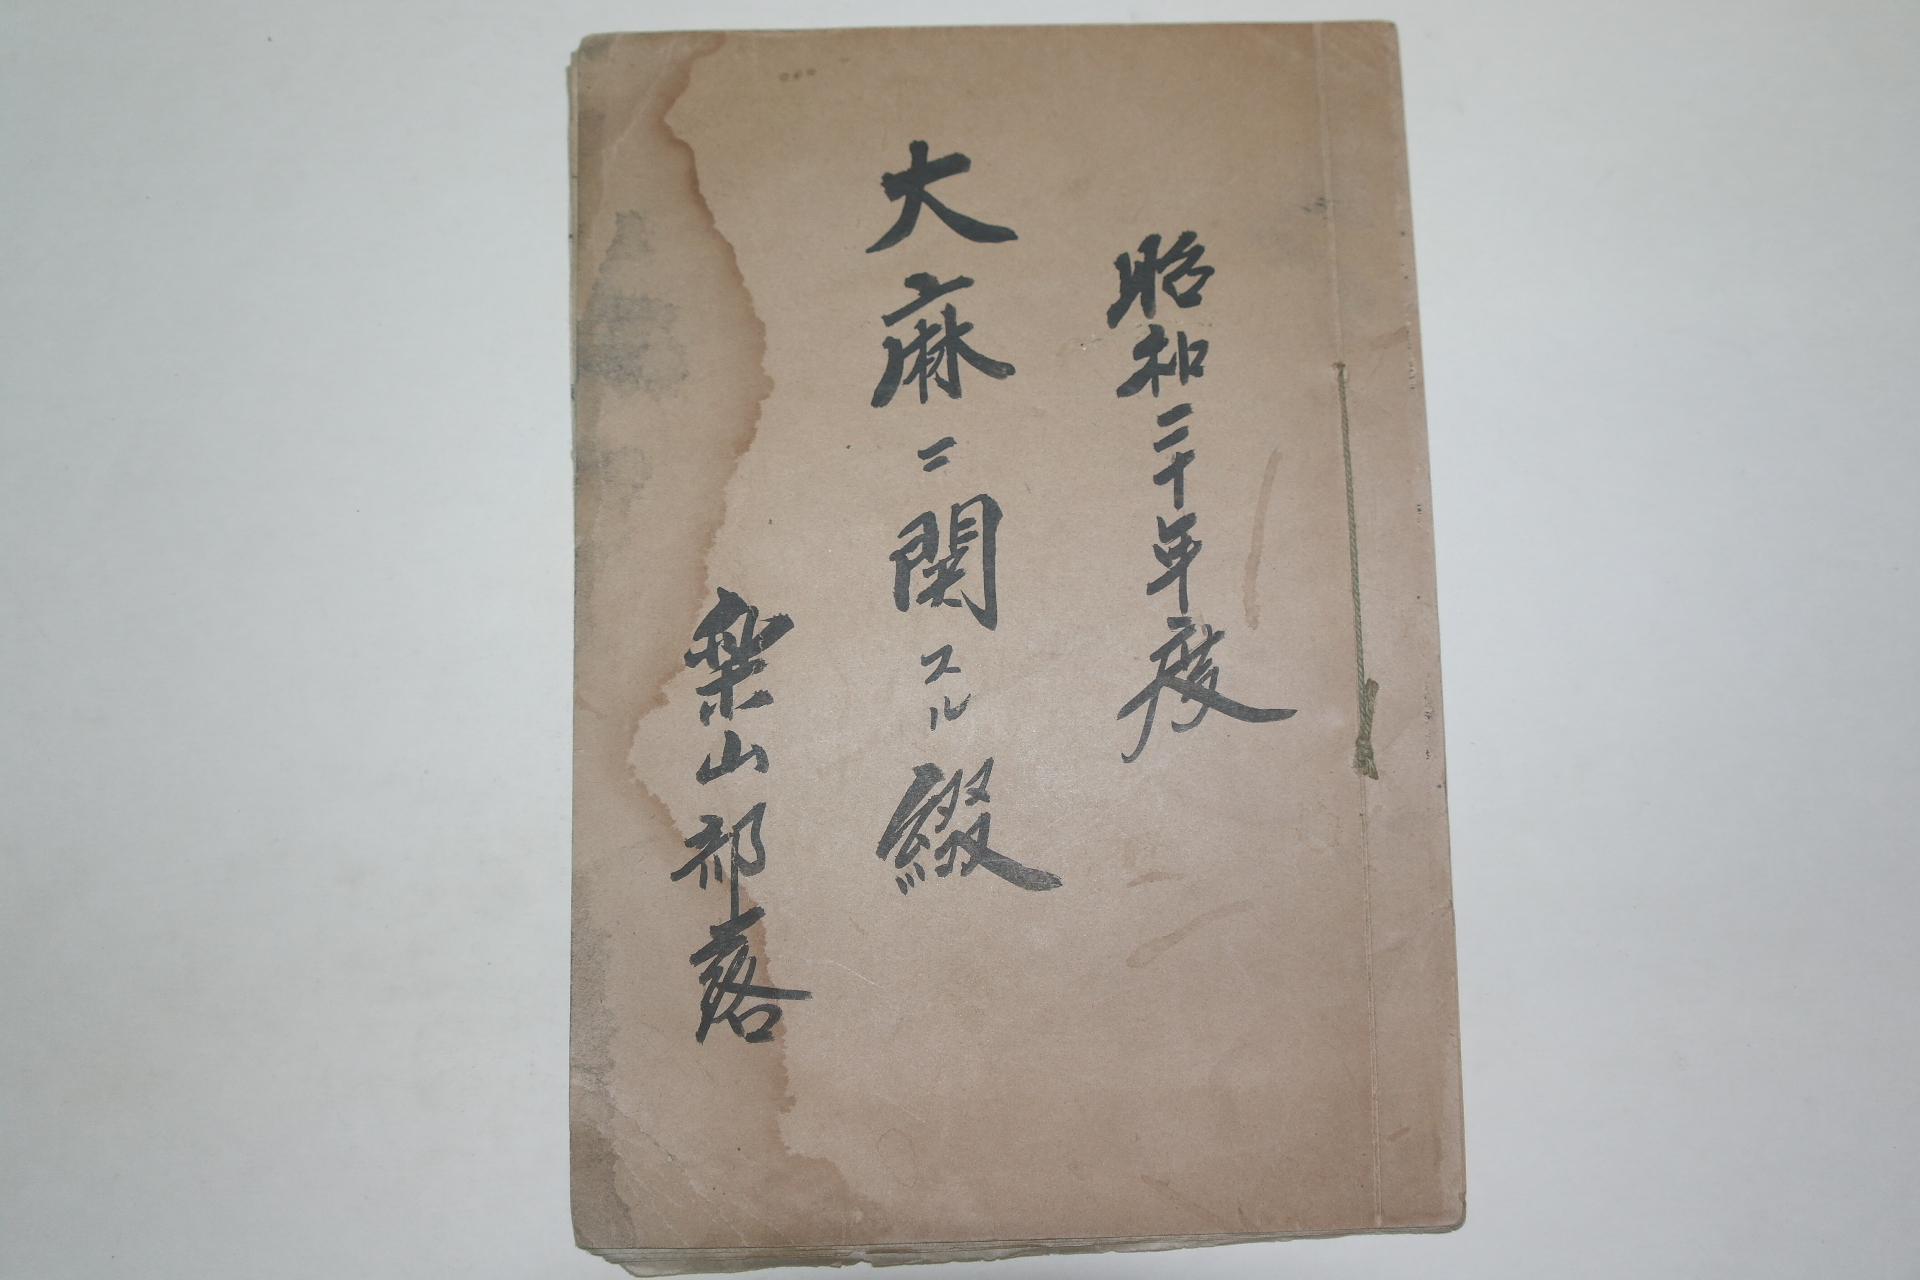 昭和二十年度
大麻ニ関スル綴
楽山部落